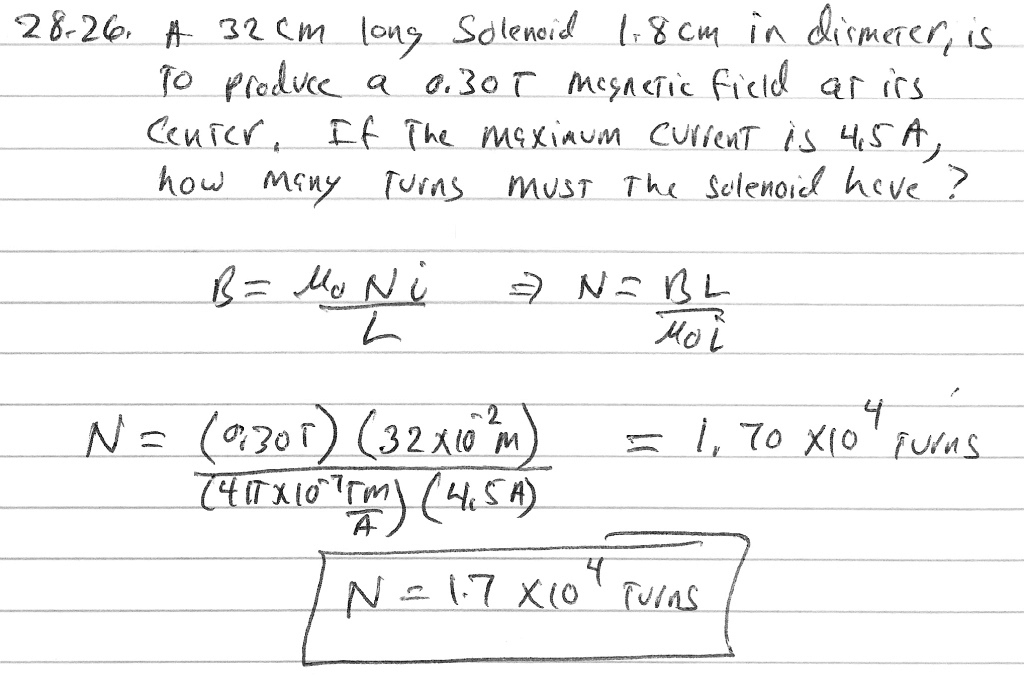 28-26. A 32 cm long Solenoid 1.8 cm in diameter, is
To produce a 0.30 T magnetic field at its
Center. If The maximum current is 4.5 A,
how many Turns must The solenoid have?
B = μ₀ N i / L ⇒ N = B L / μ₀ i
N = (0.30 T) (32 x10⁻² m) / (4π x10⁻⁷ Tm/A) (4.5 A) = 1.70 x10⁴ Turns
N = 1.7 x10⁴ Turns